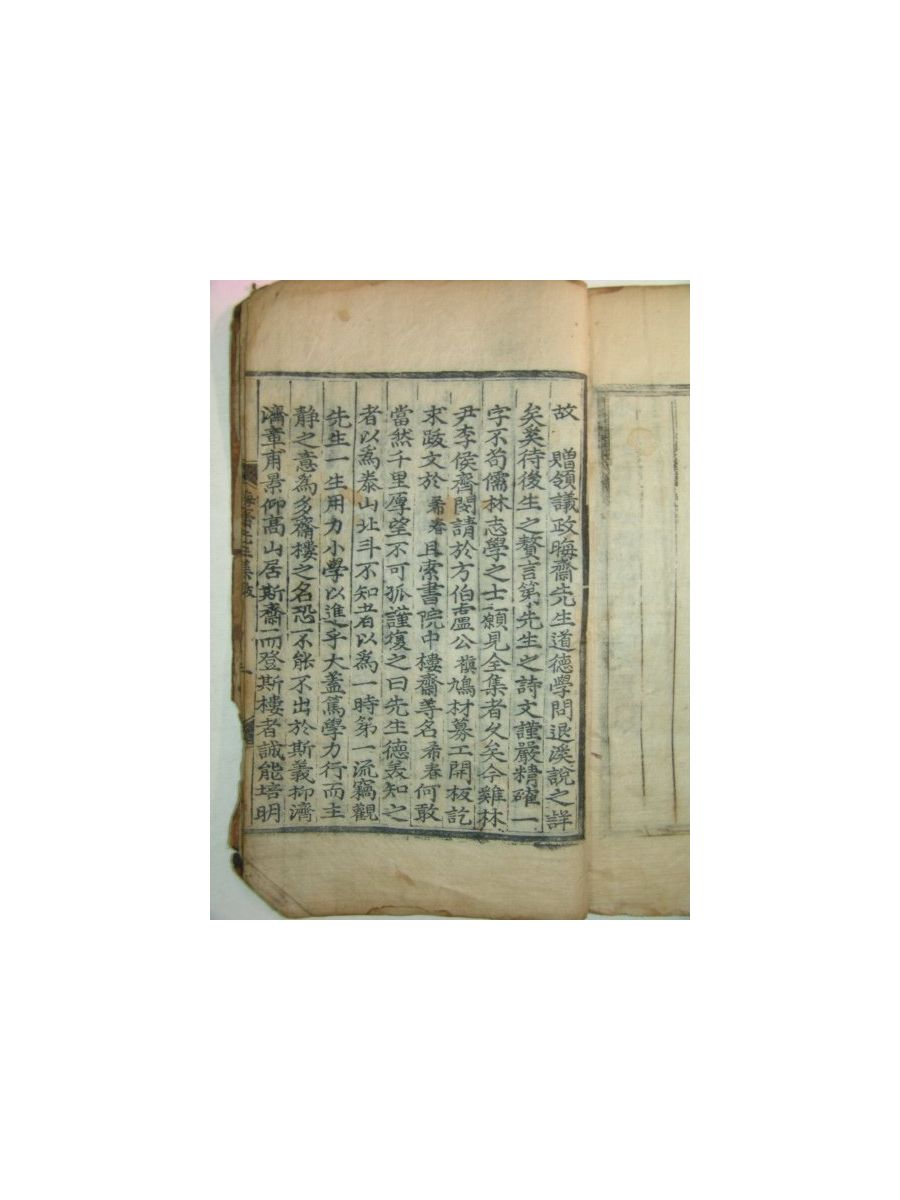 故 贈領議政晦齋先生道德學問退溪說之詳
矣奚待後生之贅言第先生之詩文謹嚴精確一
字不苟儒林志學之士願見全集者久矣今雞林
尹李侯齊閔請於方伯盧公禛鳩材募工開板訖
求跋文於希春且索書院中樓齋等名希春何敢
當然千里厚望不可孤謹復之曰先生德義知之
者以爲泰山北斗不知者以爲一時第一流竊觀
先生一生用力小學以進乎大蓋篤學力行而主
静之意爲多齋樓之名恐不能不出於斯義抑濟
濟章甫景仰高山居斯齋而登斯樓者誠能培明